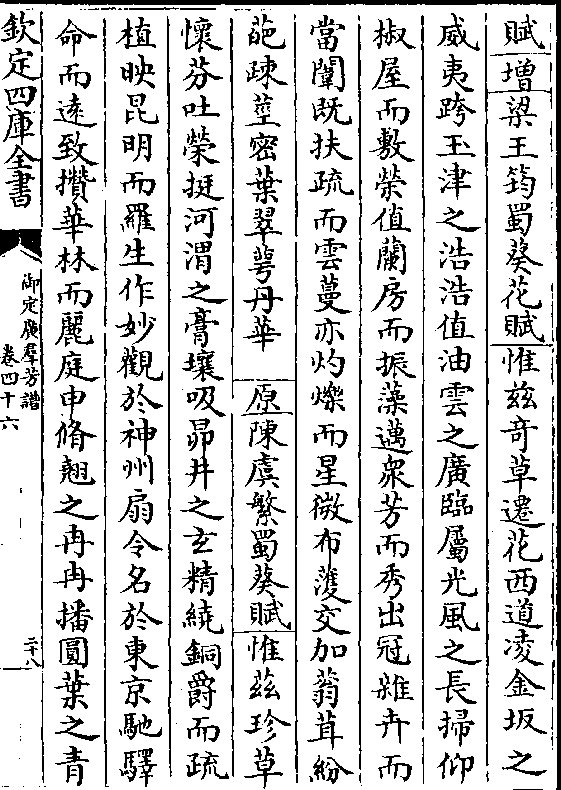 賦增梁王筠蜀葵花賦惟茲奇草遷花西道凌金坂之
威夷跨玉津之浩浩值油雲之廣臨屬光風之長掃仰
椒屋而敷榮值蘭房而振藻邁衆芳而秀出冠雜卉而
當闈既扶疏而雲蔓亦灼爍而星微布濩交加蓊茸紛
葩疎莖密葉翠萼丹華　原陳虞繁蜀葵賦惟茲珍草
懷芬吐榮挺河渭之膏壤吸昴井之玄精繞銅爵而疏
植映昆明而羅生作妙觀於神州扇令名於東京馳驛
命而遠致攢華林而麗庭申脩翹之冉冉播圓葉之青
欽定四庫全書
御定廣羣芳譜
卷四十六
二十八